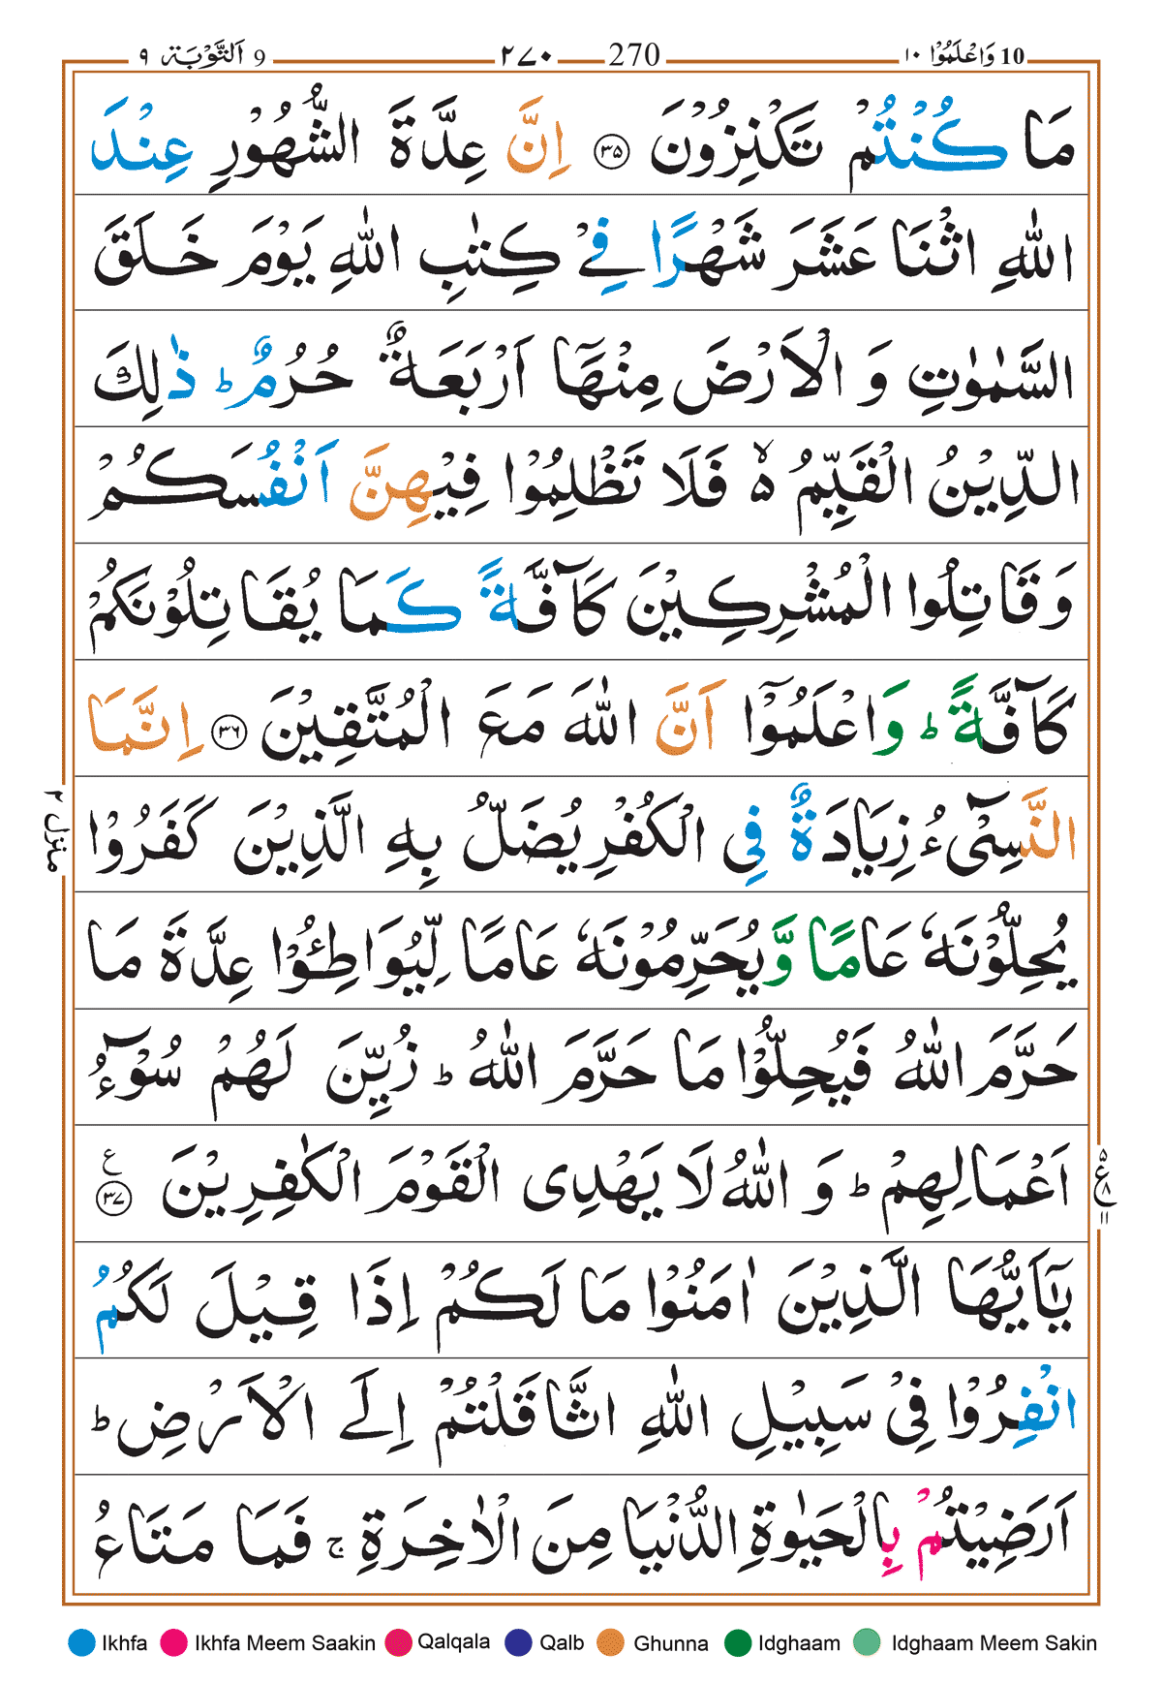 10 وَاعْلَمُوْا ١٠ 270 ٢٧٠ 9 اَلتَّوْبَة ٩
مَا كُنْتُمْ تَكْنِزُوْنَ ۝٣٥ اِنَّ عِدَّةَ الشُّهُوْرِ عِنْدَ
اللّٰهِ اثْنَا عَشَرَ شَهْرًا فِيْ كِتٰبِ اللّٰهِ يَوْمَ خَلَقَ
السَّمٰوٰتِ وَ الْاَرْضَ مِنْهَاۤ اَرْبَعَةٌ حُرُمٌ ؕ ذٰلِكَ
الدِّيْنُ الْقَيِّمُ ۙ۬ فَلَا تَظْلِمُوْا فِيْهِنَّ اَنْفُسَكُمْ
وَقَاتِلُوا الْمُشْرِكِيْنَ كَآفَّةً كَمَا يُقَاتِلُوْنَكُمْ
كَآفَّةً ؕ وَاعْلَمُوْۤا اَنَّ اللّٰهَ مَعَ الْمُتَّقِيْنَ ۝٣٦ اِنَّمَا
النَّسِیْٓءُ زِيَادَةٌ فِي الْكُفْرِ يُضَلُّ بِهِ الَّذِيْنَ كَفَرُوْا
يُحِلُّوْنَهٗ عَامًا وَّيُحَرِّمُوْنَهٗ عَامًا لِّيُوَاطِـُٔوْا عِدَّةَ مَا
حَرَّمَ اللّٰهُ فَيُحِلُّوْا مَا حَرَّمَ اللّٰهُ ؕ زُيِّنَ لَهُمْ سُوْٓءُ
اَعْمَالِهِمْ ؕ وَ اللّٰهُ لَا يَهْدِى الْقَوْمَ الْكٰفِرِيْنَ ۝٣٧ ع
يٰۤاَيُّهَا الَّذِيْنَ اٰمَنُوْا مَا لَكُمْ اِذَا قِيْلَ لَكُمُ
انْفِرُوْا فِيْ سَبِيْلِ اللّٰهِ اثَّاقَلْتُمْ اِلَى الْاَرْضِ ؕ
اَرَضِيْتُمْ بِالْحَيٰوةِ الدُّنْيَا مِنَ الْاٰخِرَةِ ۚ فَمَا مَتَاعُ
منزل ٢
ع ٥ ٨ ١١
Ikhfa Ikhfa Meem Saakin Qalqala Qalb Ghunna Idghaam Idghaam Meem Sakin